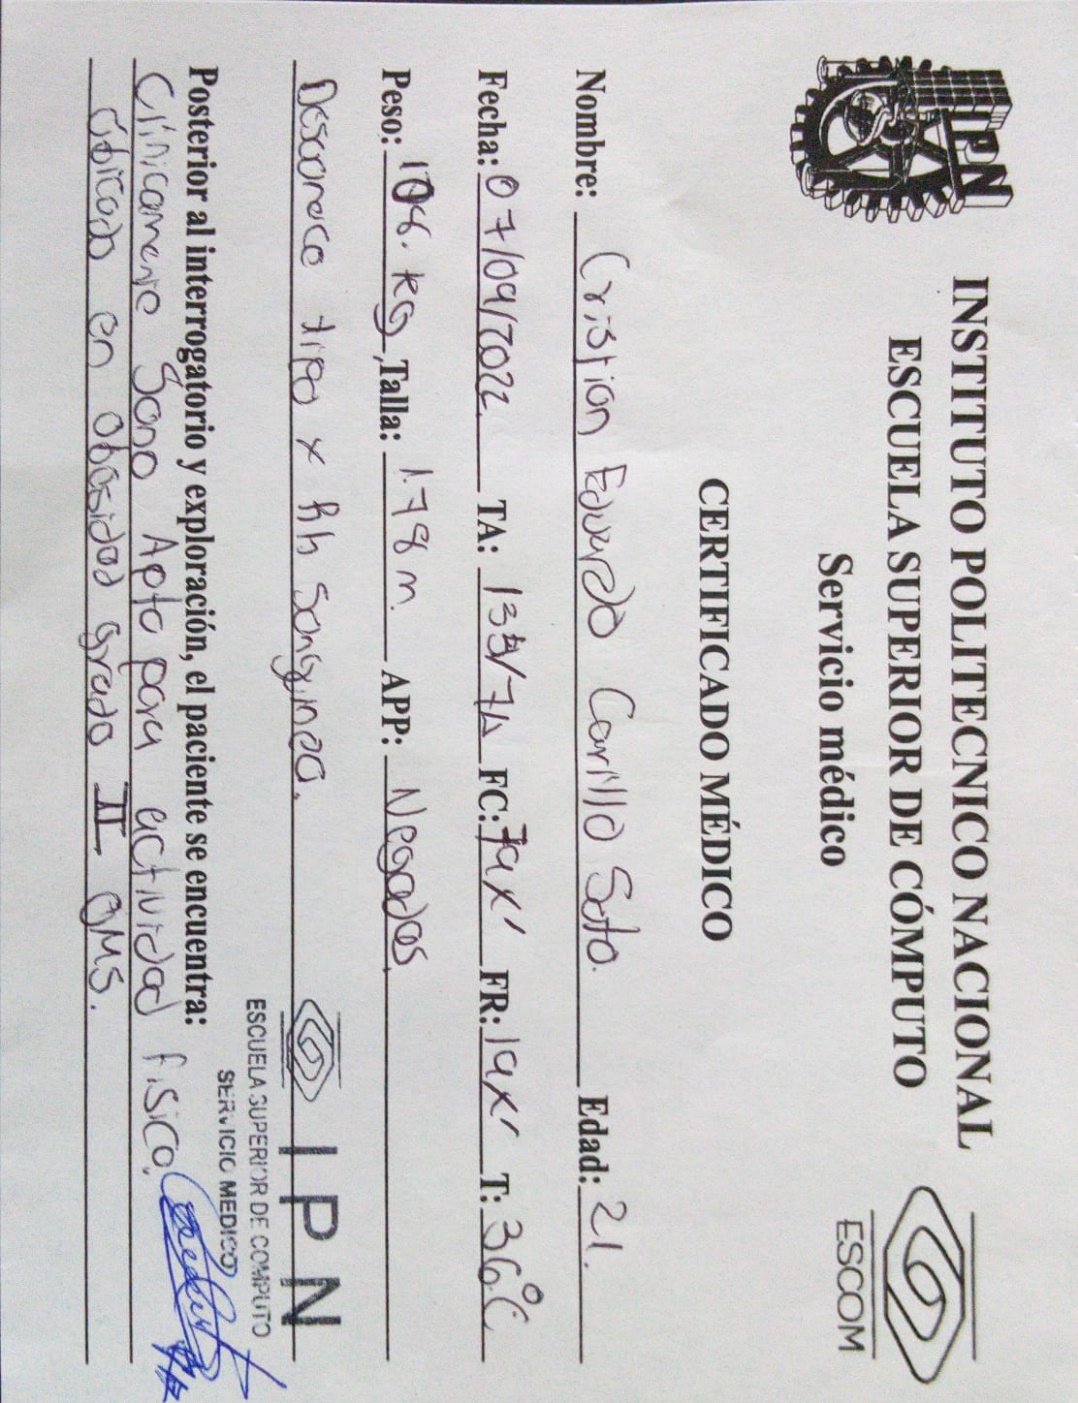 IPN
INSTITUTO POLITECNICO NACIONAL
ESCUELA SUPERIOR DE CÓMPUTO
Servicio médico
ESCOM
CERTIFICADO MÉDICO
Nombre: Cristian Eduardo Carillo Soto. Edad: 21.
Fecha: 07/09/2022 TA: FC: 79x' FR: 19x' T: 36°C
Peso: 106. kg, Talla: 1.78 m. APP: Negados.
Desconoce tipo x Rh sanguineo.
IPN
ESCUELA SUPERIOR DE COMPUTO
SERVICIO MEDICO
Posterior al interrogatorio y exploración, el paciente se encuentra:
Clínicamente Sano Apto para actividad física.
Ubicado en obesidad grado II OMS.